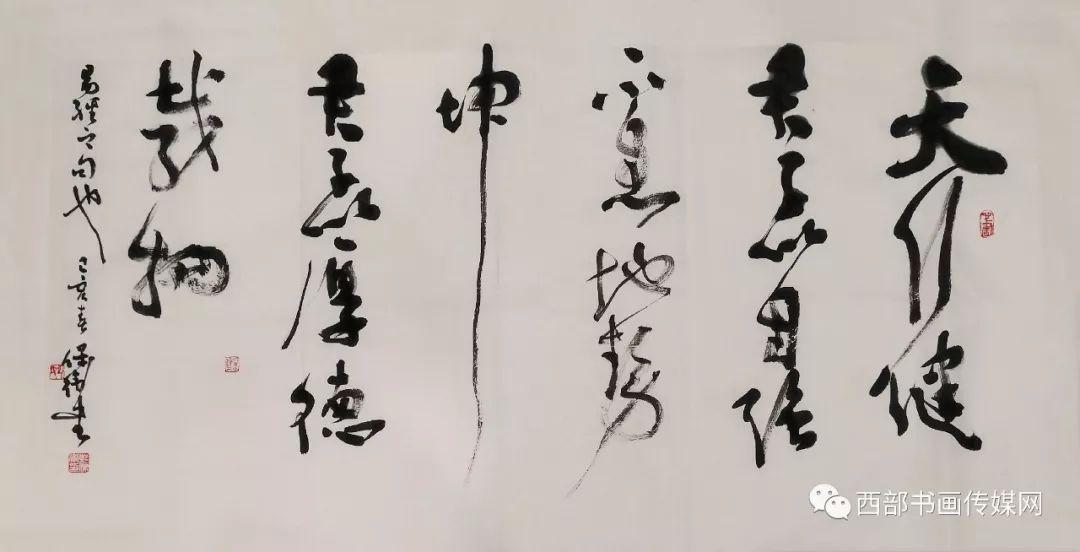 天行健
君子以自强
不息地势
坤
君子以厚德
载物
易经之句也 己亥春 保衛书
西部书画传媒网